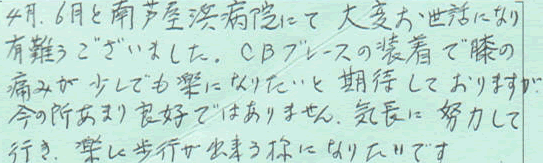 4月、6月と南芦屋浜病院にて大変お世話になり
有難うございました。CBブレースの装着で膝の
痛みが少しでも楽になりたいと期待しておりますが
今の所あまり良好ではありません。気長に努力して
行き、楽に歩行が出来る様になりたいです